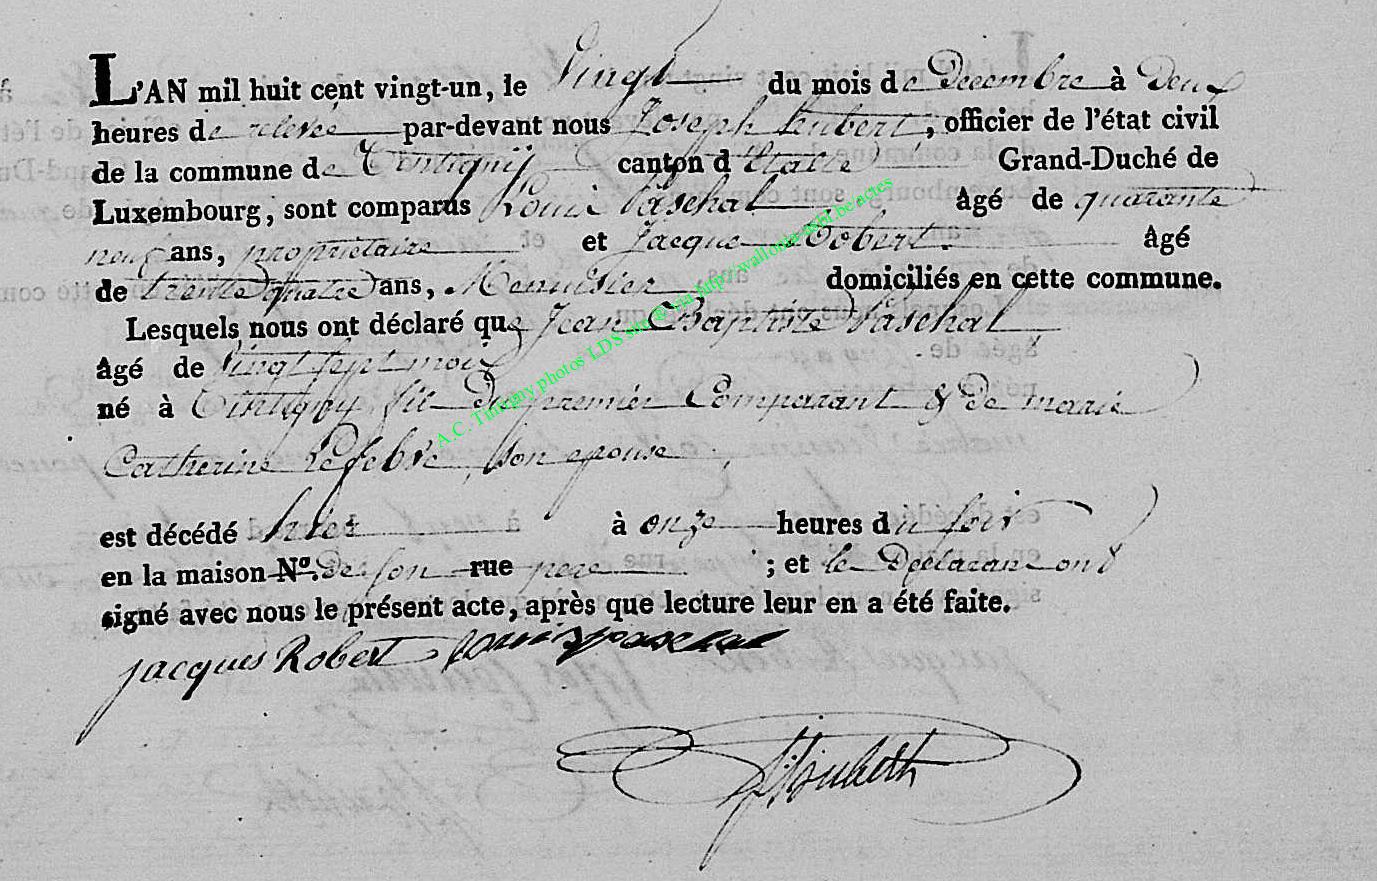 L'AN mil huit cent vingt-un, le Vingt du mois de Decembre à Deux
heures de relevée par-devant nous Joseph hubert, officier de l'état civil
de la commune de Tintigny canton d'Etalle Grand-Duché de
Luxembourg, sont comparus Louis Paschal âgé de quarante
neuf ans, propriétaire et Jacque Robert âgé
de trente quatre ans, Menuisier domiciliés en cette commune.
Lesquels nous ont déclaré que Jean Baptiste Paschal
âgé de Vingt sept mois
né à Tintigny fils du premier Comparant & de marie
Catherine Lefebvre, son epouse,
est décédé hier à onze heures du soir
en la maison No. de son rue pere ; et le Declarant ont
signé avec nous le présent acte, après que lecture leur en a été faite.
jacques Robert Louis paschal
A.C. Tintigny photos LDS sur & via http://wallonia-asbl.be/actes